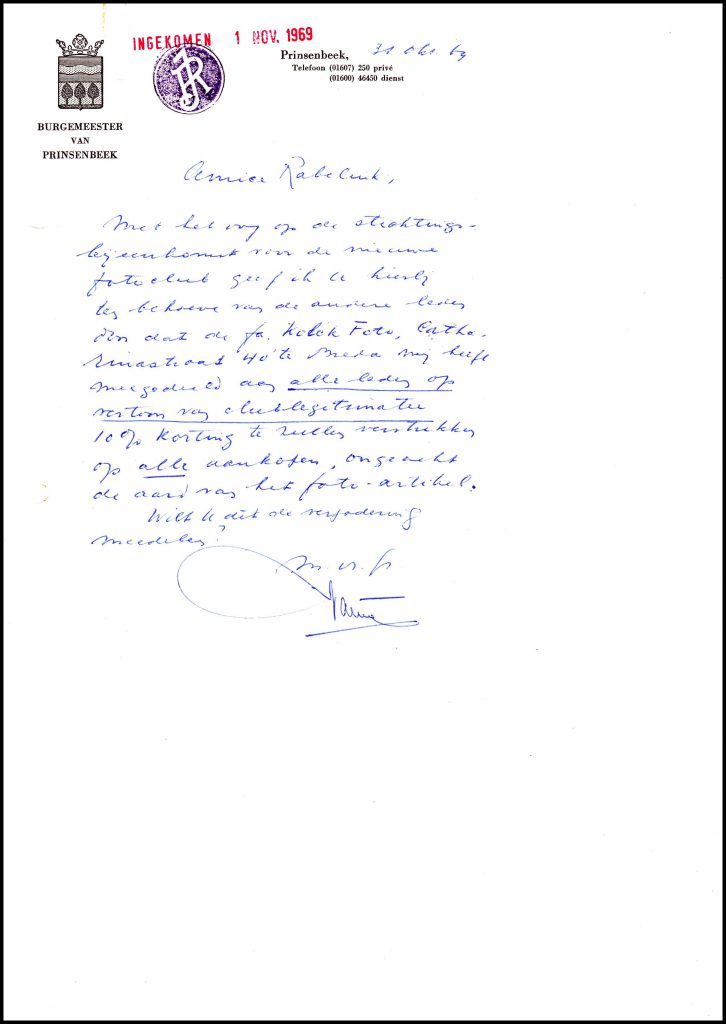 INGEKOMEN 1 NOV. 1969
Prinsenbeek, 31 okt. 69
Telefoon (01607) 250 privé
(01600) 46450 dienst
BURGEMEESTER
VAN
PRINSENBEEK
Amice Rabelink,
Met het oog op de stichtings-
bijeenkomst voor de nieuwe
fotoclub geef ik U hierbij
ten behoeve van de andere leden
door dat de fa. Kolck Foto, Catha-
rinastraat 40 te Breda mij heeft
meegedeeld aan alle leden op
vertoon van clublegitimatie
10% korting te zullen verstrekken
op alle aankopen, ongeacht
de aard van het foto-artikel.
Wilt U dit de vergadering
meedelen?
m. vr. gr.